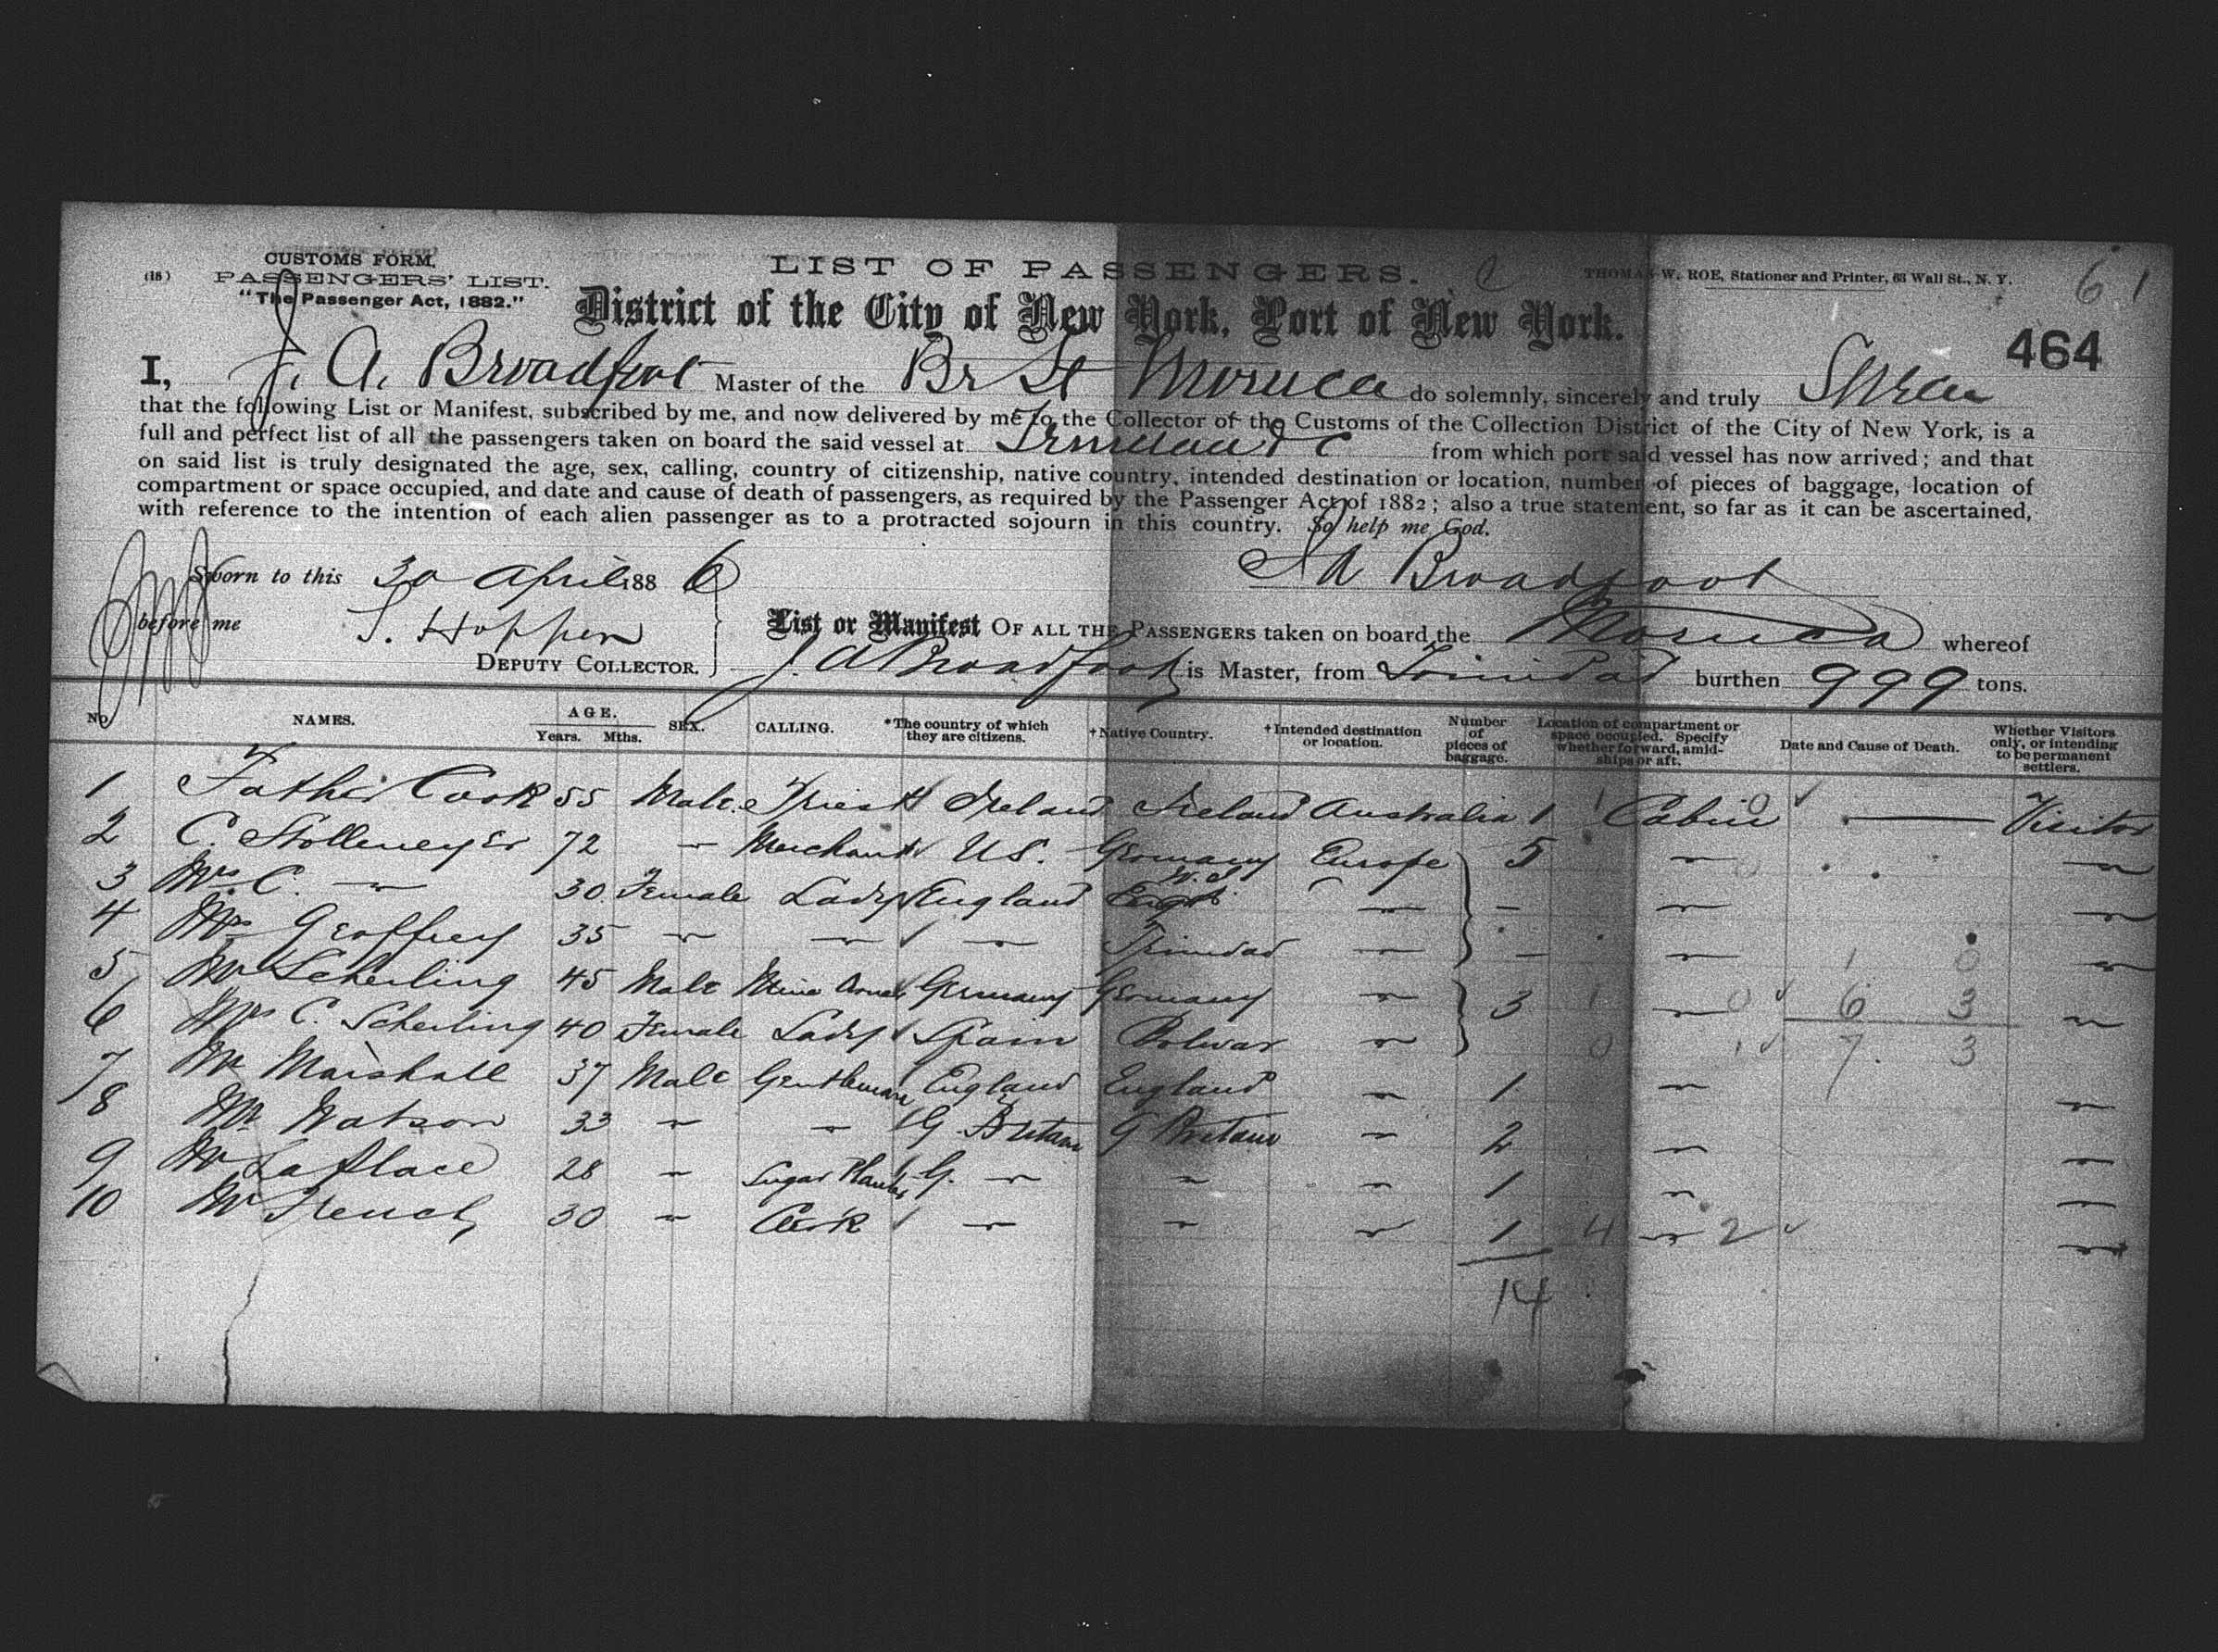 CUSTOMS FORM.
(18) PASSENGERS' LIST.
"The Passenger Act, 1882."
LIST OF PASSENGERS.
THOMAS W. ROE, Stationer and Printer, 63 Wall St., N. Y.
61
District of the City of New York, Port of New York.
464
I, J. A. Broadfoot Master of the Br St Moruca do solemnly, sincerely and truly Swear
that the following List or Manifest, subscribed by me, and now delivered by me to the Collector of the Customs of the Collection District of the City of New York, is a
full and perfect list of all the passengers taken on board the said vessel at Trinidad &c from which port said vessel has now arrived; and that
on said list is truly designated the age, sex, calling, country of citizenship, native country, intended destination or location, number of pieces of baggage, location of
compartment or space occupied, and date and cause of death of passengers, as required by the Passenger Act of 1882; also a true statement, so far as it can be ascertained,
with reference to the intention of each alien passenger as to a protracted sojourn in this country. So help me God.
Sworn to this 30 April 1886
J A Broadfoot
before me S. Hopper
DEPUTY COLLECTOR.
List or Manifest OF ALL THE PASSENGERS taken on board the Moruca whereof
J. A Broadfoot is Master, from Trinidad burthen 999 tons.
No. NAMES. AGE. Years. Mths. SEX. CALLING. *The country of which they are citizens. †Native Country. †Intended destination or location. Number of pieces of baggage. Location of compartment or space occupied. Specify whether forward, amidships or aft. Date and Cause of Death. Whether Visitors only, or intending to be permanent settlers.
1 Father Cook 55 Male Priest Ireland Ireland Australia 1 Cabin — Visitor
2 C. Stollmeyer 72 " Merchant U.S. Germany Europe 5 " "
3 Mrs C. " 30 Female Lady England W. I. " - " "
4 Mrs Geoffrey 35 " " " Trinidad " - " "
5 Mr Scherling 45 Male Mine Germany Germany " 3 " "
6 Mrs C. Scherling 40 Female Lady Spain Bolivar "
7 Mr Marshall 37 Male Gentleman England England " 1 " "
8 Mr Watson 33 " " G. Britain G Britain " 2 " "
9 Mr La place 28 " Sugar Planter G. " " " 1 " "
10 Mr French 30 " Clerk " " " 1 " "
14